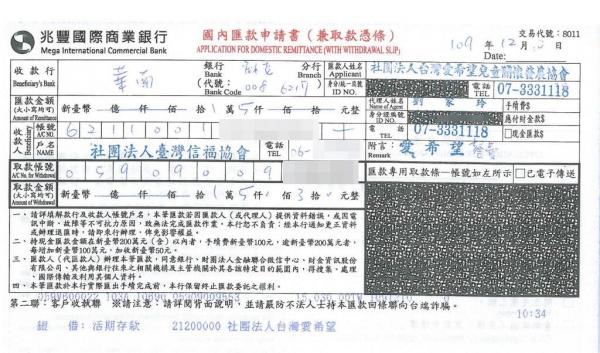 兆豐國際商業銀行
Mega International Commercial Bank
國內匯款申請書(兼取款憑條)
APPLICATION FOR DOMESTIC REMITTANCE (WITH WITHDRAWAL SLIP)
交易代號:8011
109年12月
Date:
收款行
Beneficiary's Bank
華南
銀行
Bank
分行
Branch
(代號:
Bank Code
008 6217)
匯款人姓名
Applicant
社團法人台灣愛希望兒童關懷發展協會
身分/統一編號
ID NO.
電話
TEL
07-3331118
匯款金額
(大小寫均可)
Amount of Remittance
新臺幣 億 仟 佰 拾 1萬 5仟 佰 拾 元整
代理人姓名
Name of Agent
劉家玲
手續費$
身分證編號
ID NO.
應付財金款$
收款人
Beneficiary
帳號
A/C NO.
6211001
電話
TEL
07-3331118
□現金匯款$
戶名
NAME
社團法人臺灣信福協會
電話
TEL
06-
附言:
Remark
愛希望
取款帳號
A/C No. for Withdrawal
05909009
匯款專用取款條─帳號如左所示
□已電子傳送
取款金額
(大小寫均可)
Amount of Withdrawal
新臺幣 億 仟 佰 拾 1萬 5仟 佰 3拾 元整
一、請詳填解款行及收款人帳號戶名,本筆匯款若因匯款人(或代理人)提供資料錯誤,或因電
訊中斷、故障等不可抗力原因,致無法完成匯款作業,本行恕不負責;經本行通知更正資料
或辦理退匯時,請即來行辦理,俾免影響權益。
二、持現金匯款金額在新臺幣200萬元(含)以內者,手續費新臺幣100元,逾新臺幣200萬元者,
每增加新臺幣100萬元,加收新臺幣50元。
三、匯款人(代匯款人)辦理本筆匯款,同意銀行、財團法人金融聯合徵信中心、財金資訊股份
有限公司、其他與銀行往來之相關機構及主管機關於其各該特定目的範圍內,得蒐集、處理
、國際傳輸及利用其個人資料。
四、本筆匯款於本行實際匯出手續完成前,本行保留終止匯款委託之權利。
第二聯:客戶收執聯 ※請注意:請詳閱背面說明,並請嚴防不法人士持本匯款回條聯向台端詐騙。
10:34
借:活期存款 21200000 社團法人台灣愛希望